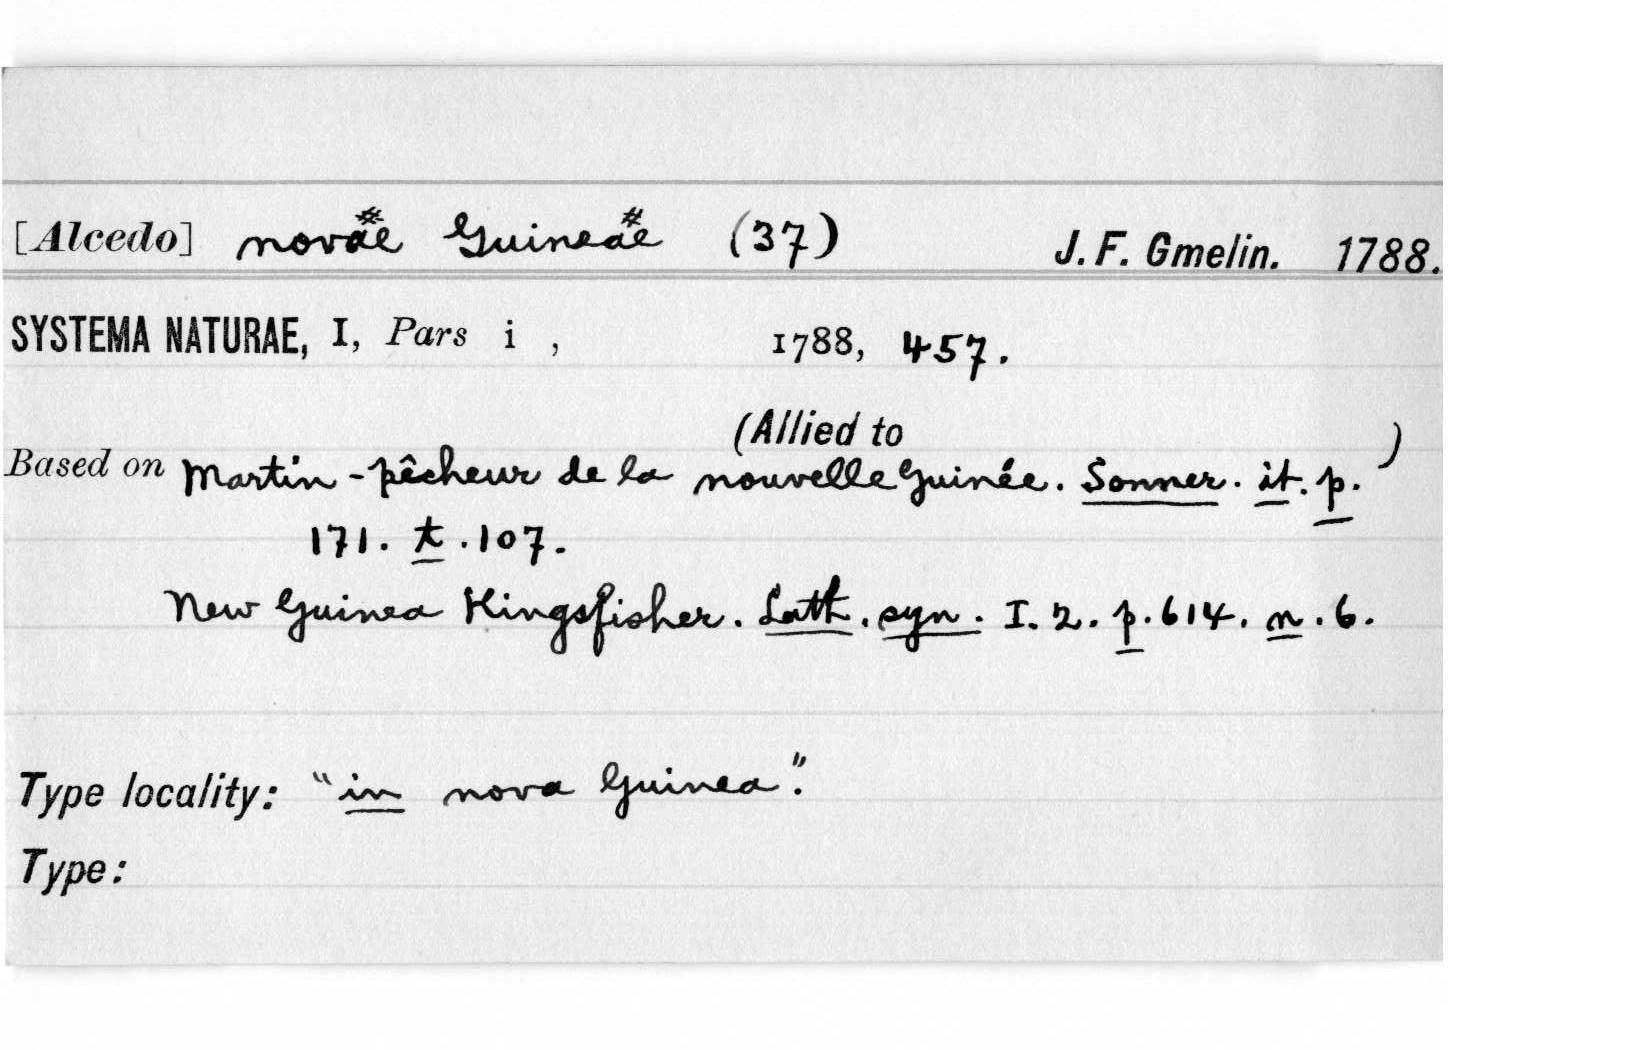 [Alcedo] novae Guineae (37) J. F. Gmelin. 1788.
SYSTEMA NATURAE, I, Pars i , 1788, 457.
(Allied to )
Based on Martin-pêcheur de la nouvelle Guinée. Sonner. it. p.
171. t. 107.
New Guinea Kingsfisher. Lath. syn. I. 2. p. 614. n. 6.
Type locality: "in nova Guinea."
Type: